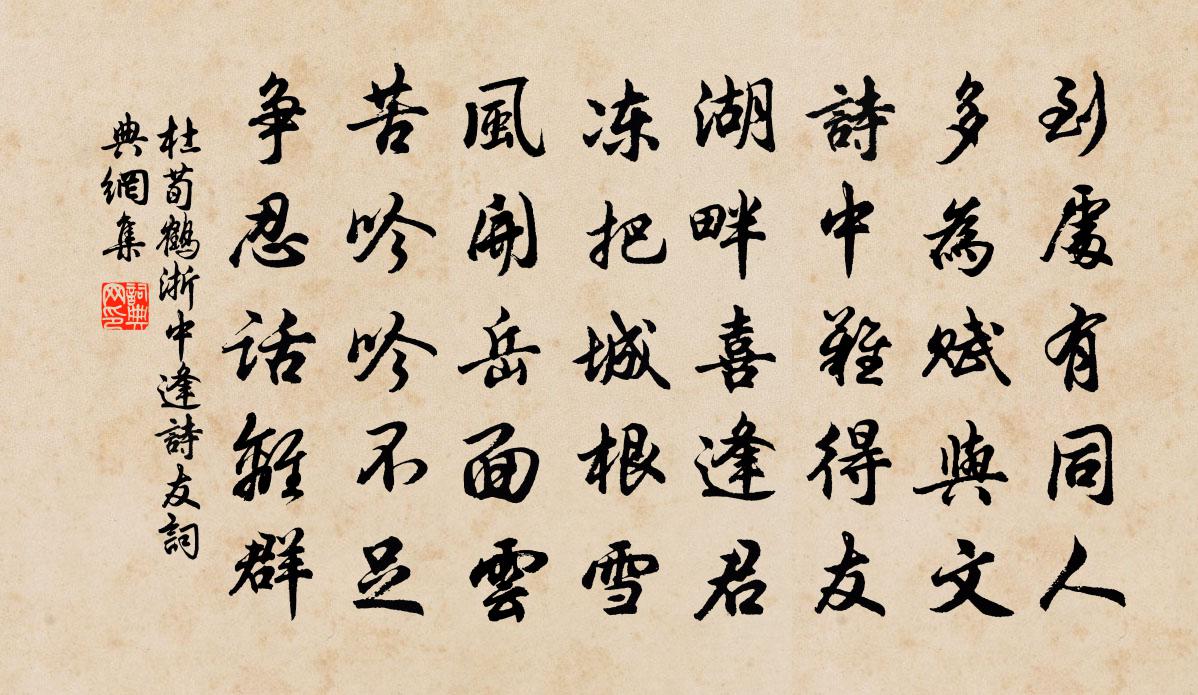 到處有同人
多為賦與文
詩中難得友
湖畔喜逢君
凍把城根雪
風開岳面雲
苦吟吟不足
爭忍話離群
杜荀鶴浙中逢詩友詞
典網集
詞典
网印